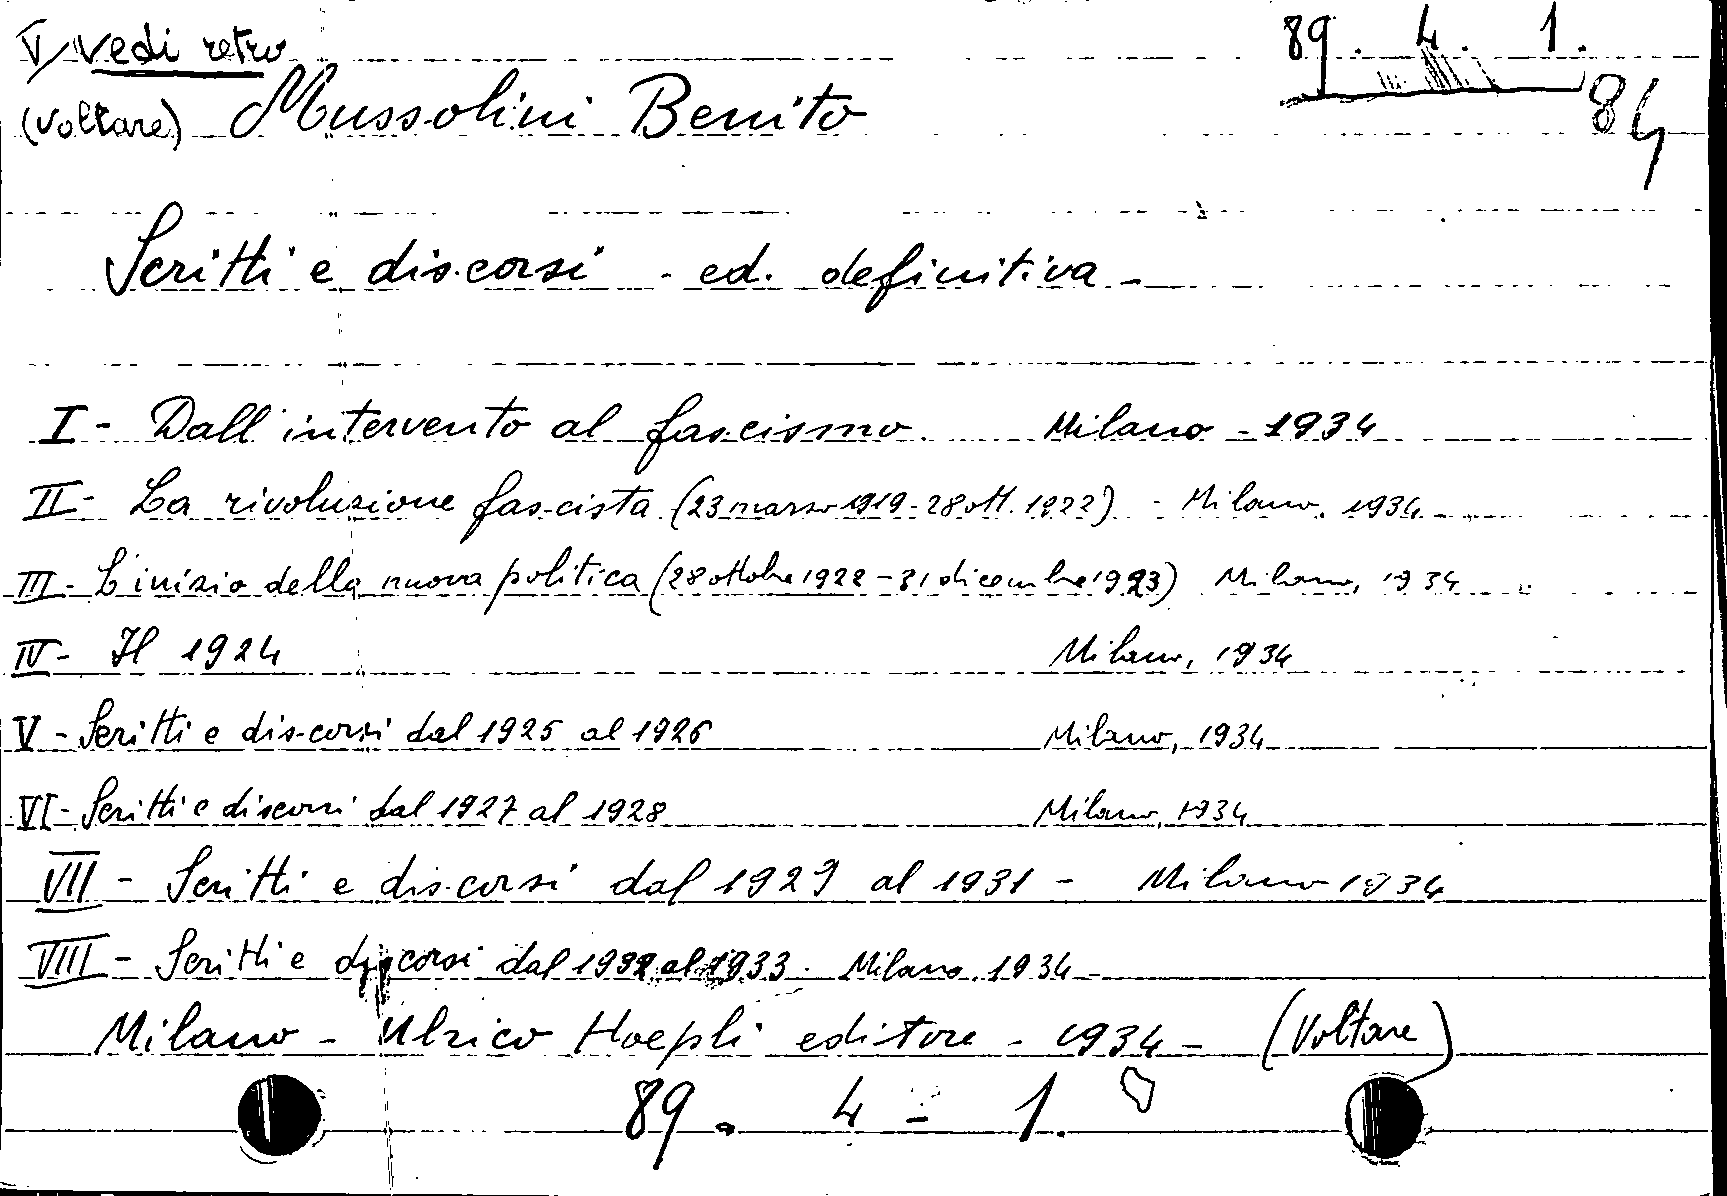 V/ vedi retro 89. 4. 1.
(Voltare) Mussolini Benito 84
Scritti e discorsi - ed. definitiva -
I - Dall'intervento al fascismo. Milano - 1934
II - La rivoluzione fascista (23 marzo 1919 - 28 ott. 1922) - Milano, 1934
III - L'inizio della nuova politica (28 ottobre 1922 - 31 dicembre 1923) Milano, 1934
IV - Il 1924 Milano, 1934
V - Scritti e discorsi dal 1925 al 1926 Milano, 1934
VI - Scritti e discorsi dal 1927 al 1928 Milano, 1934
VII - Scritti e discorsi dal 1929 al 1931 - Milano 1934
VIII - Scritti e discorsi dal 1932 al 1933. Milano. 1934 -
Milano - Ulrico Hoepli editore - 1934 - (Voltare)
89. 4 - 1.